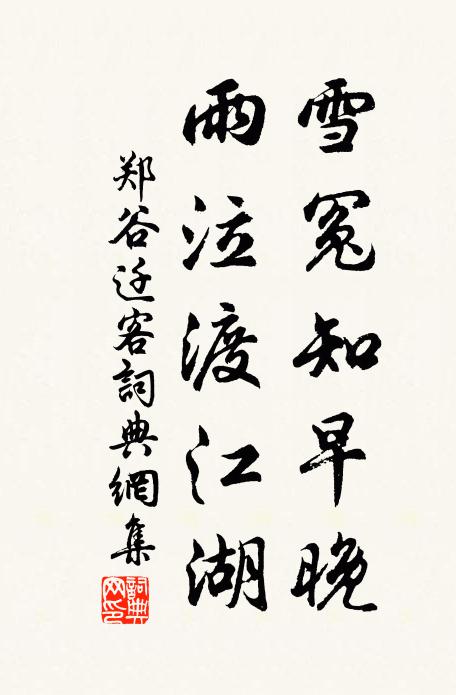 雪冤知早晚
雨泣渡江湖
郑谷迁客詞典網集
詞典网印